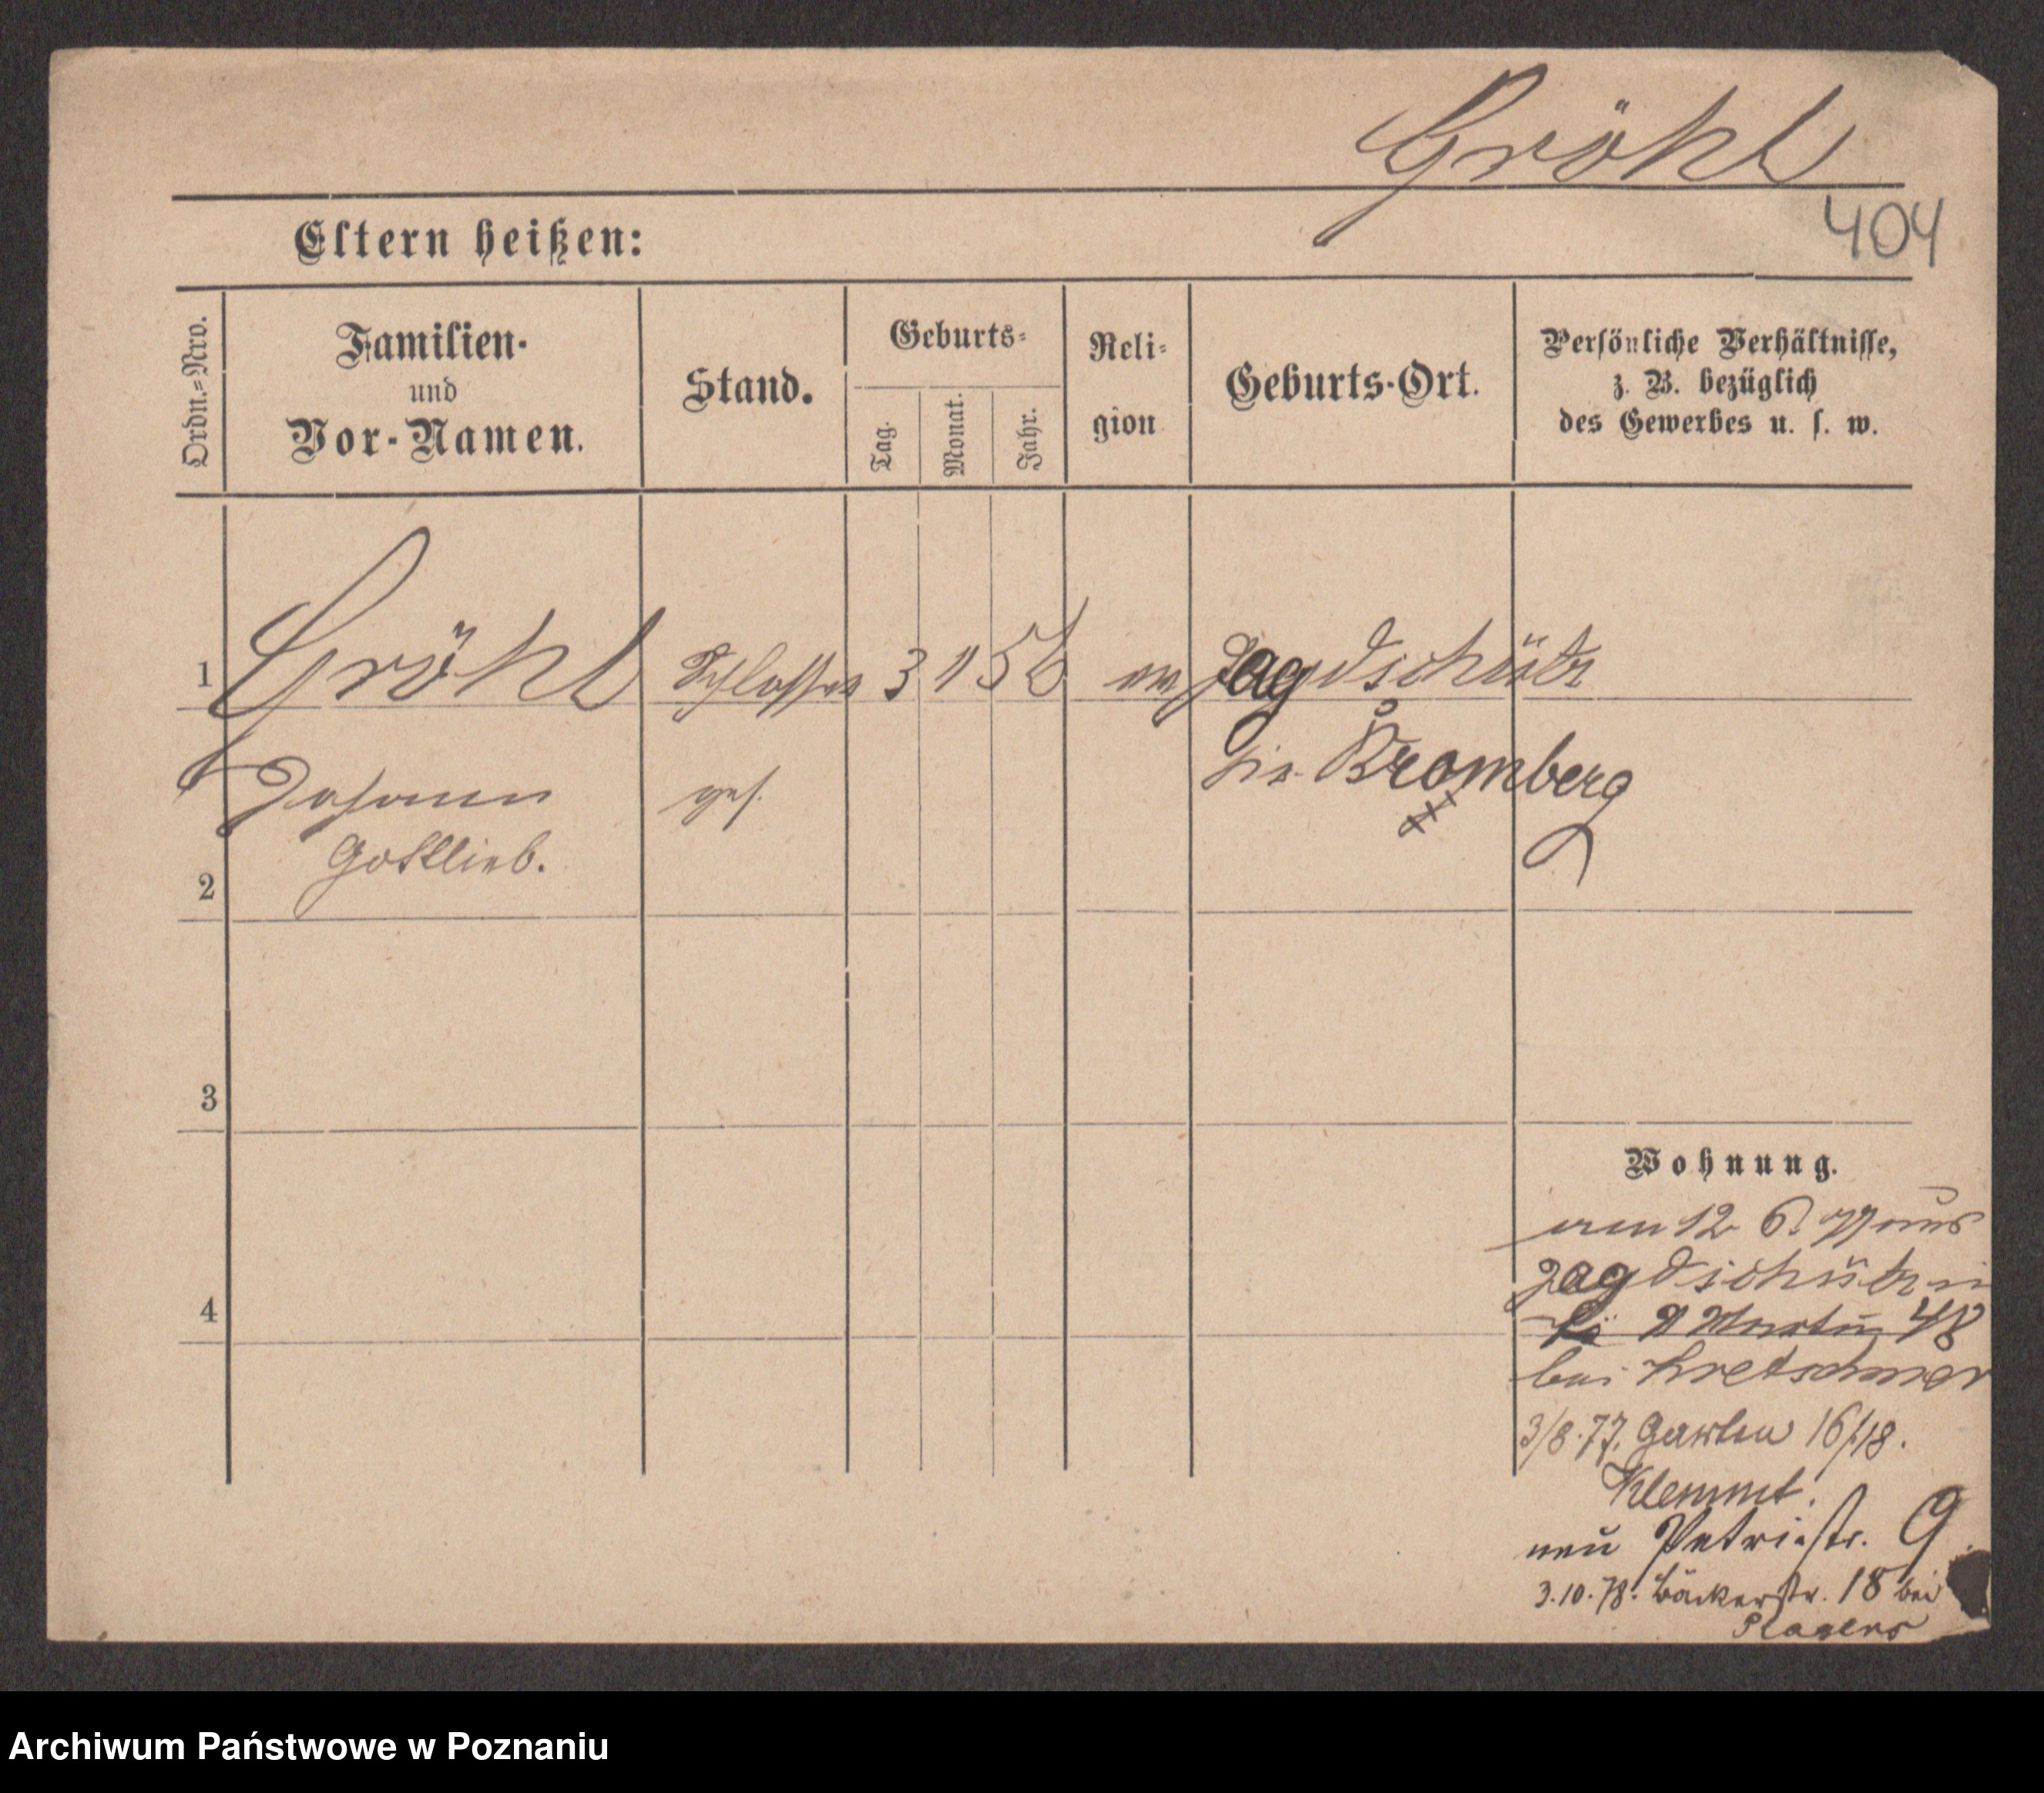 Gröhl
404
Eltern heißen:
Ordn.=Nro.
Familien-
und
Vor-Namen.
Stand.
Geburts=
Tag.
Monat.
Jahr.
Reli=
gion
Geburts-Ort.
Persönliche Verhältnisse,
z. B. bezüglich
des Gewerbes u. s. w.
1 Gröhl Schlosser 3 11 56 ev Jagdschütz
Johann ges. Bromberg
Gottlieb.
2
3
4
Wohnung.
am 12 6. 77 aus
Jagdschütz in
Martin 48
bei Kretschmer
3/8.77. Garten 16/18.
Klemmt.
neu Petristr. 9
3.10.78. Bäckerstr. 18 bei
Plagens
Archiwum Państwowe w Poznaniu